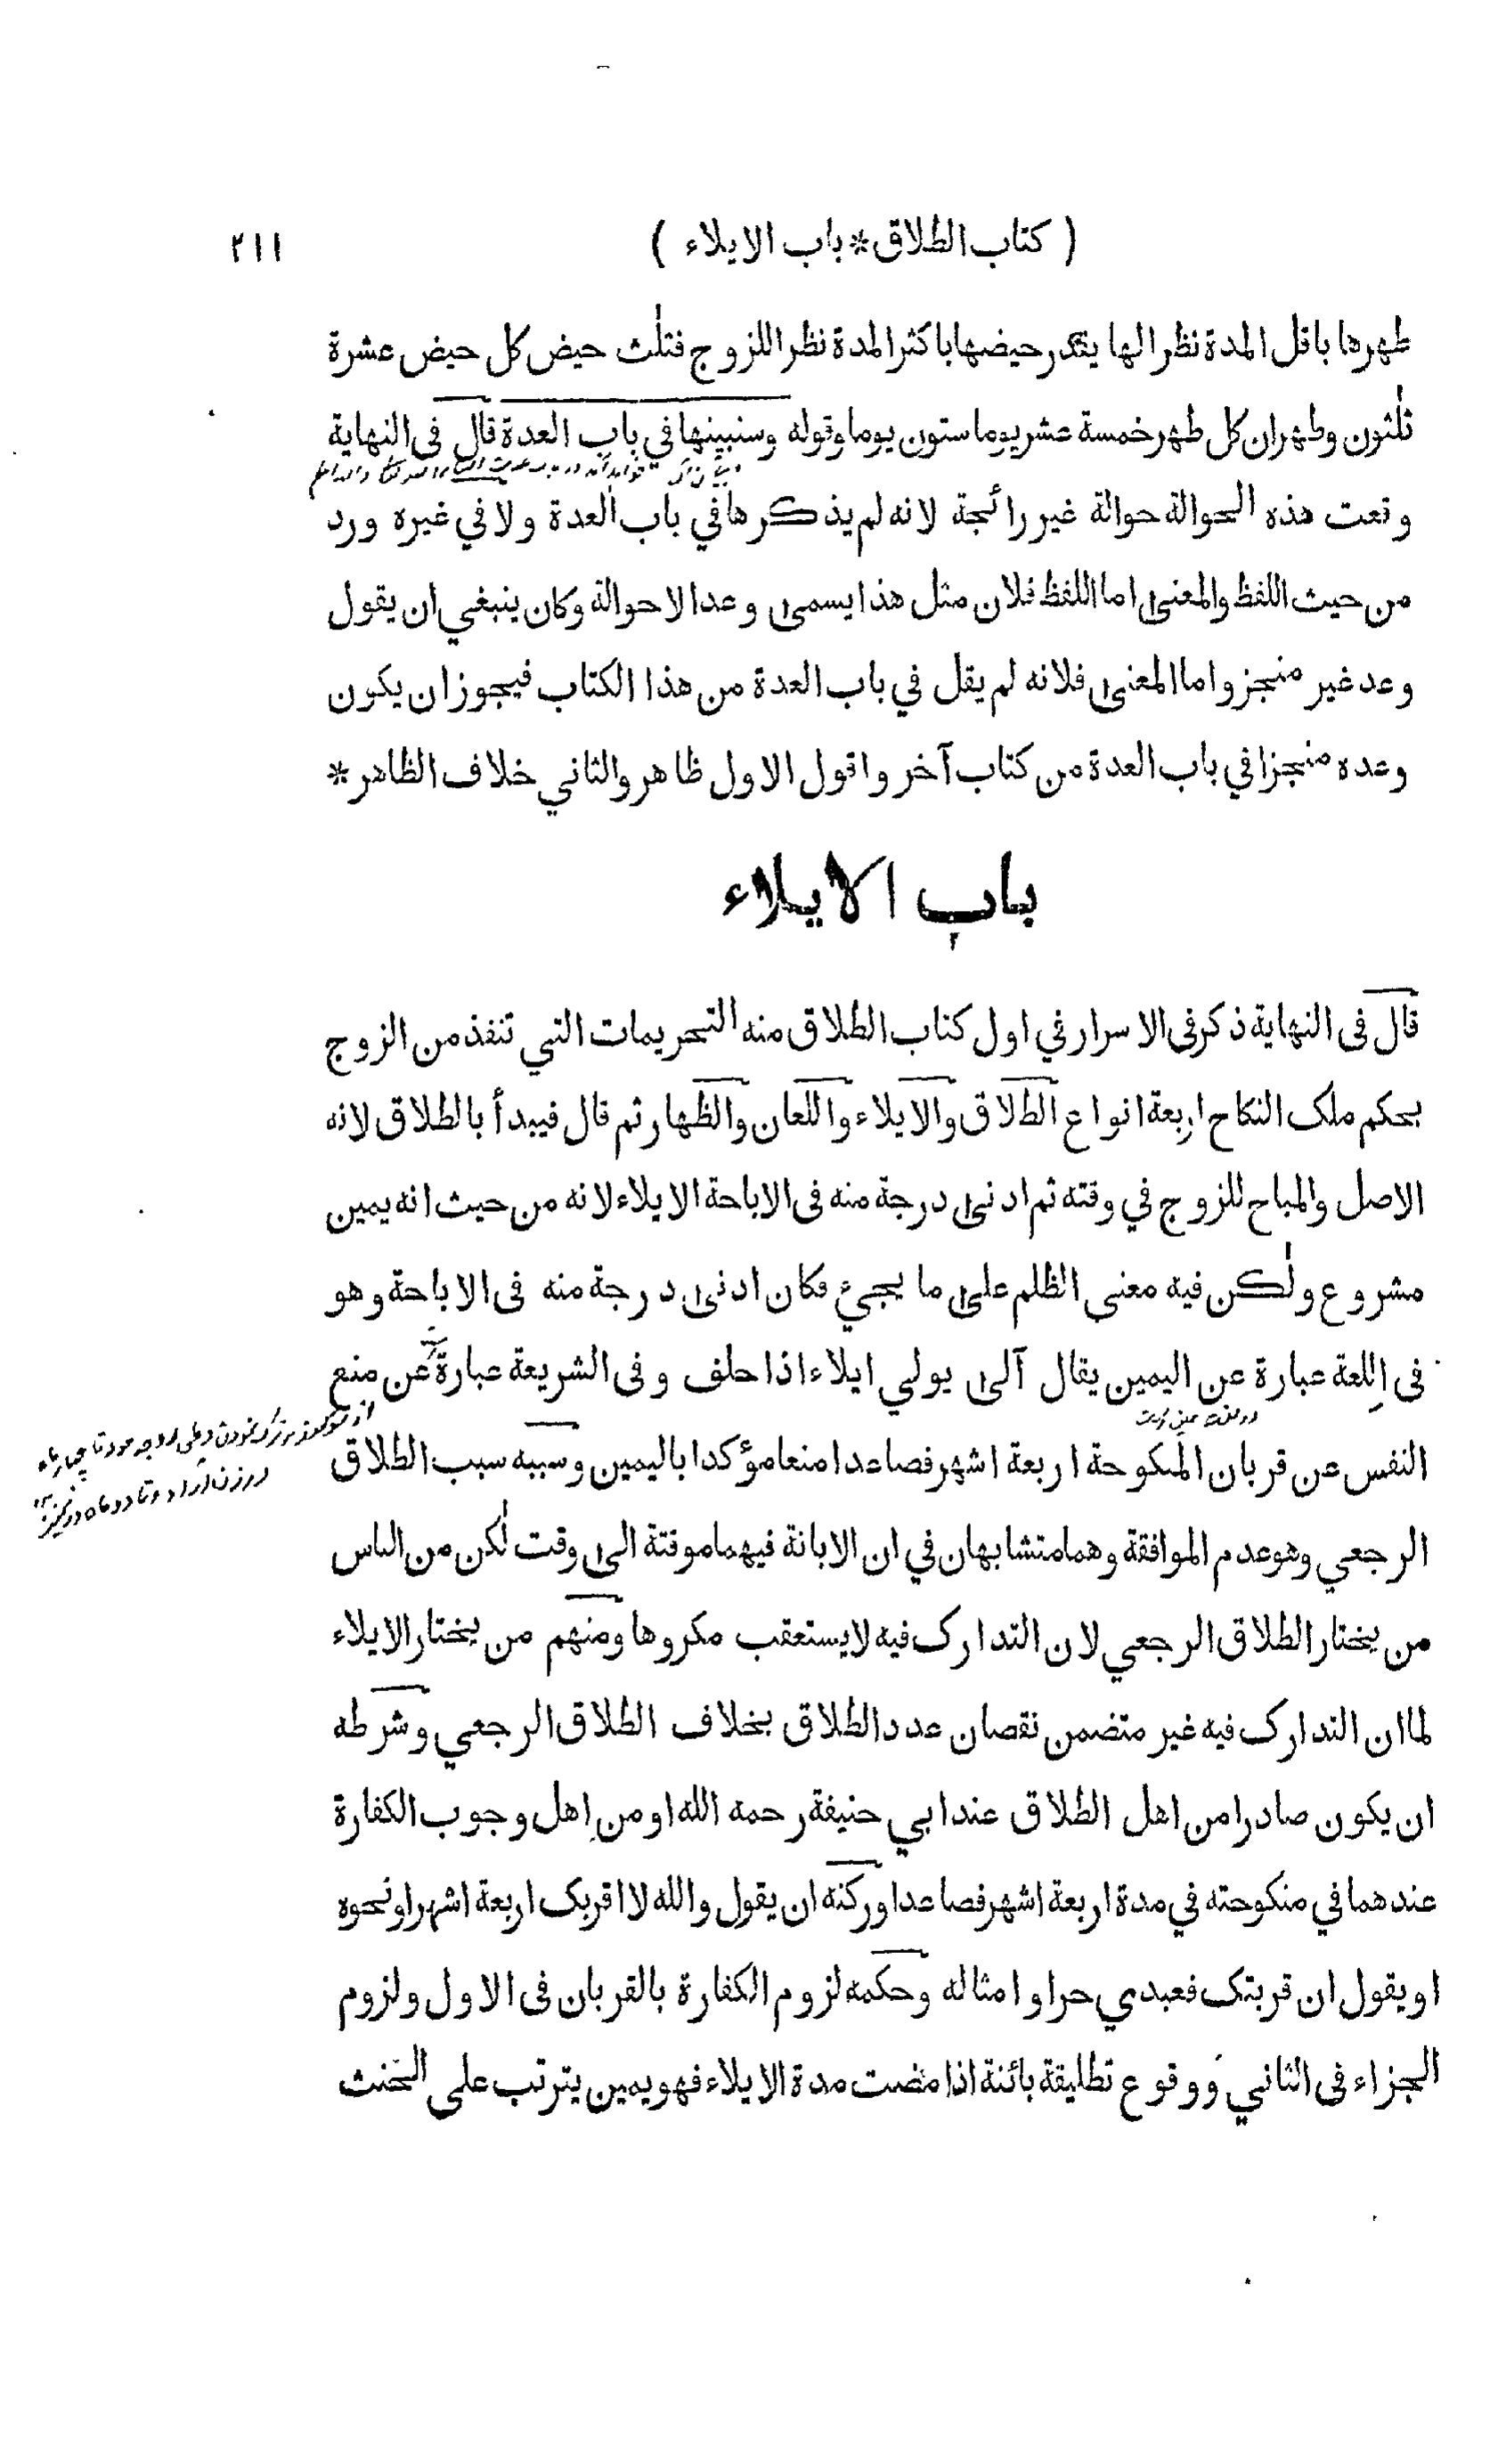 ( كتاب الطلاق * باب الايلاء )
٢١١
طهرها باقل المدة نظر الها يقدر حيضها باكثر المدة نظر اللزوج فثلث حيض كل حيض عشرة
ثلثون وطهران كل طهر خمسة عشر يوما ستون يوما وقوله وسنبينها في باب العدة قال فى النهاية
وقعت هذه الحوالة حوالة غير رائجة لانه لم يذكرها في باب العدة ولا في غيره ورد
من حيث اللفظ والمعنى اما اللفظ فلان مثل هذا يسمى وعدا لا حوالة وكان ينبغي ان يقول
وعد غير منجز واما المعنى فلانه لم يقل في باب العدة من هذا الكتاب فيجوز ان يكون
وعده منجزا في باب العدة من كتاب آخر واقول الاول ظاهر والثاني خلاف الظاهر *
باب الايلاء
قال فى النهاية ذكر فى الاسرار في اول كتاب الطلاق منه التحريمات التي تنفذ من الزوج
بحكم ملك النكاح اربعة انواع الطلاق والايلاء واللعان والظهار ثم قال فيبدأ بالطلاق لانه
الاصل والمباح للزوج في وقته ثم ادنى درجة منه فى الاباحة الايلاء لانه من حيث انه يمين
مشروع ولكن فيه معنى الظلم على ما يجيء فكان ادنى درجة منه فى الاباحة وهو
فى اللغة عبارة عن اليمين يقال آلى يولي ايلاء اذا حلف وفى الشريعة عبارة عن منع
النفس عن قربان المنكوحة اربعة اشهر فصاعدا منعا مؤكدا باليمين وسببه سبب الطلاق
الرجعي وهو عدم الموافقة وهما متشابهان في ان الابانة فيهما موقتة الى وقت لكن من الناس
من يختار الطلاق الرجعي لان التدارك فيه لا يستعقب مكروها ومنهم من يختار الايلاء
لما ان التدارك فيه غير متضمن نقصان عدد الطلاق بخلاف الطلاق الرجعي وشرطه
ان يكون صادرا من اهل الطلاق عند ابي حنيفة رحمه الله او من اهل وجوب الكفارة
عندهما في منكوحته في مدة اربعة اشهر فصاعدا وركنه ان يقول والله لا اقربك اربعة اشهر او نحوه
او يقول ان قربتك فعبدي حر او امثاله وحكمه لزوم الكفارة بالقربان فى الاول ولزوم
الجزاء فى الثاني ووقوع تطليقة بائنة اذا مضت مدة الايلاء فهو يمين يترتب على الحنث